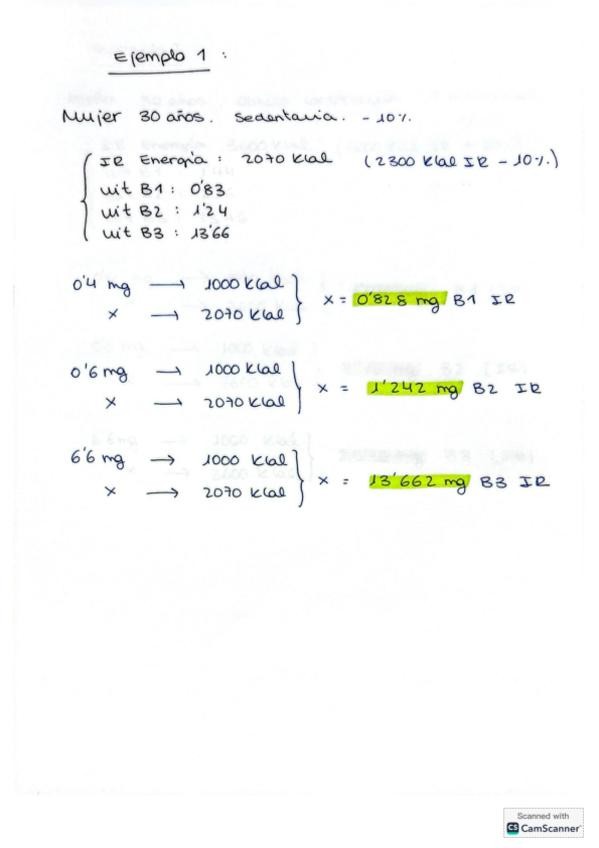 Ejemplo 1 :
Mujer 30 años. Sedentaria. - 10%.
IR Energía : 2070 Kcal (2300 Kcal IR - 10%.)
vit B1 : 0'83
vit B2 : 1'24
vit B3 : 13'66
0'4 mg → 1000 Kcal
x → 2070 Kcal
x = 0'828 mg B1 IR
0'6 mg → 1000 Kcal
x → 2070 Kcal
x = 1'242 mg B2 IR
6'6 mg → 1000 Kcal
x → 2070 Kcal
x = 13'662 mg B3 IR
Scanned with
CS CamScanner